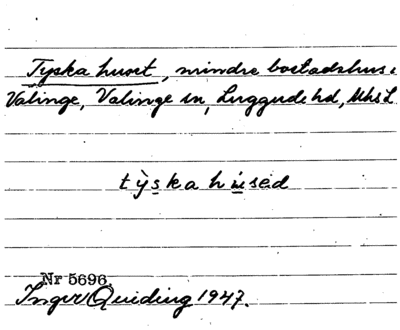 Tyska huset, mindre bostadshus i
Välinge, Välinge sn, Luggude hd, Mhs L
tỳska hùsed
Nr 5696.
Ingvor Quiding 1947.